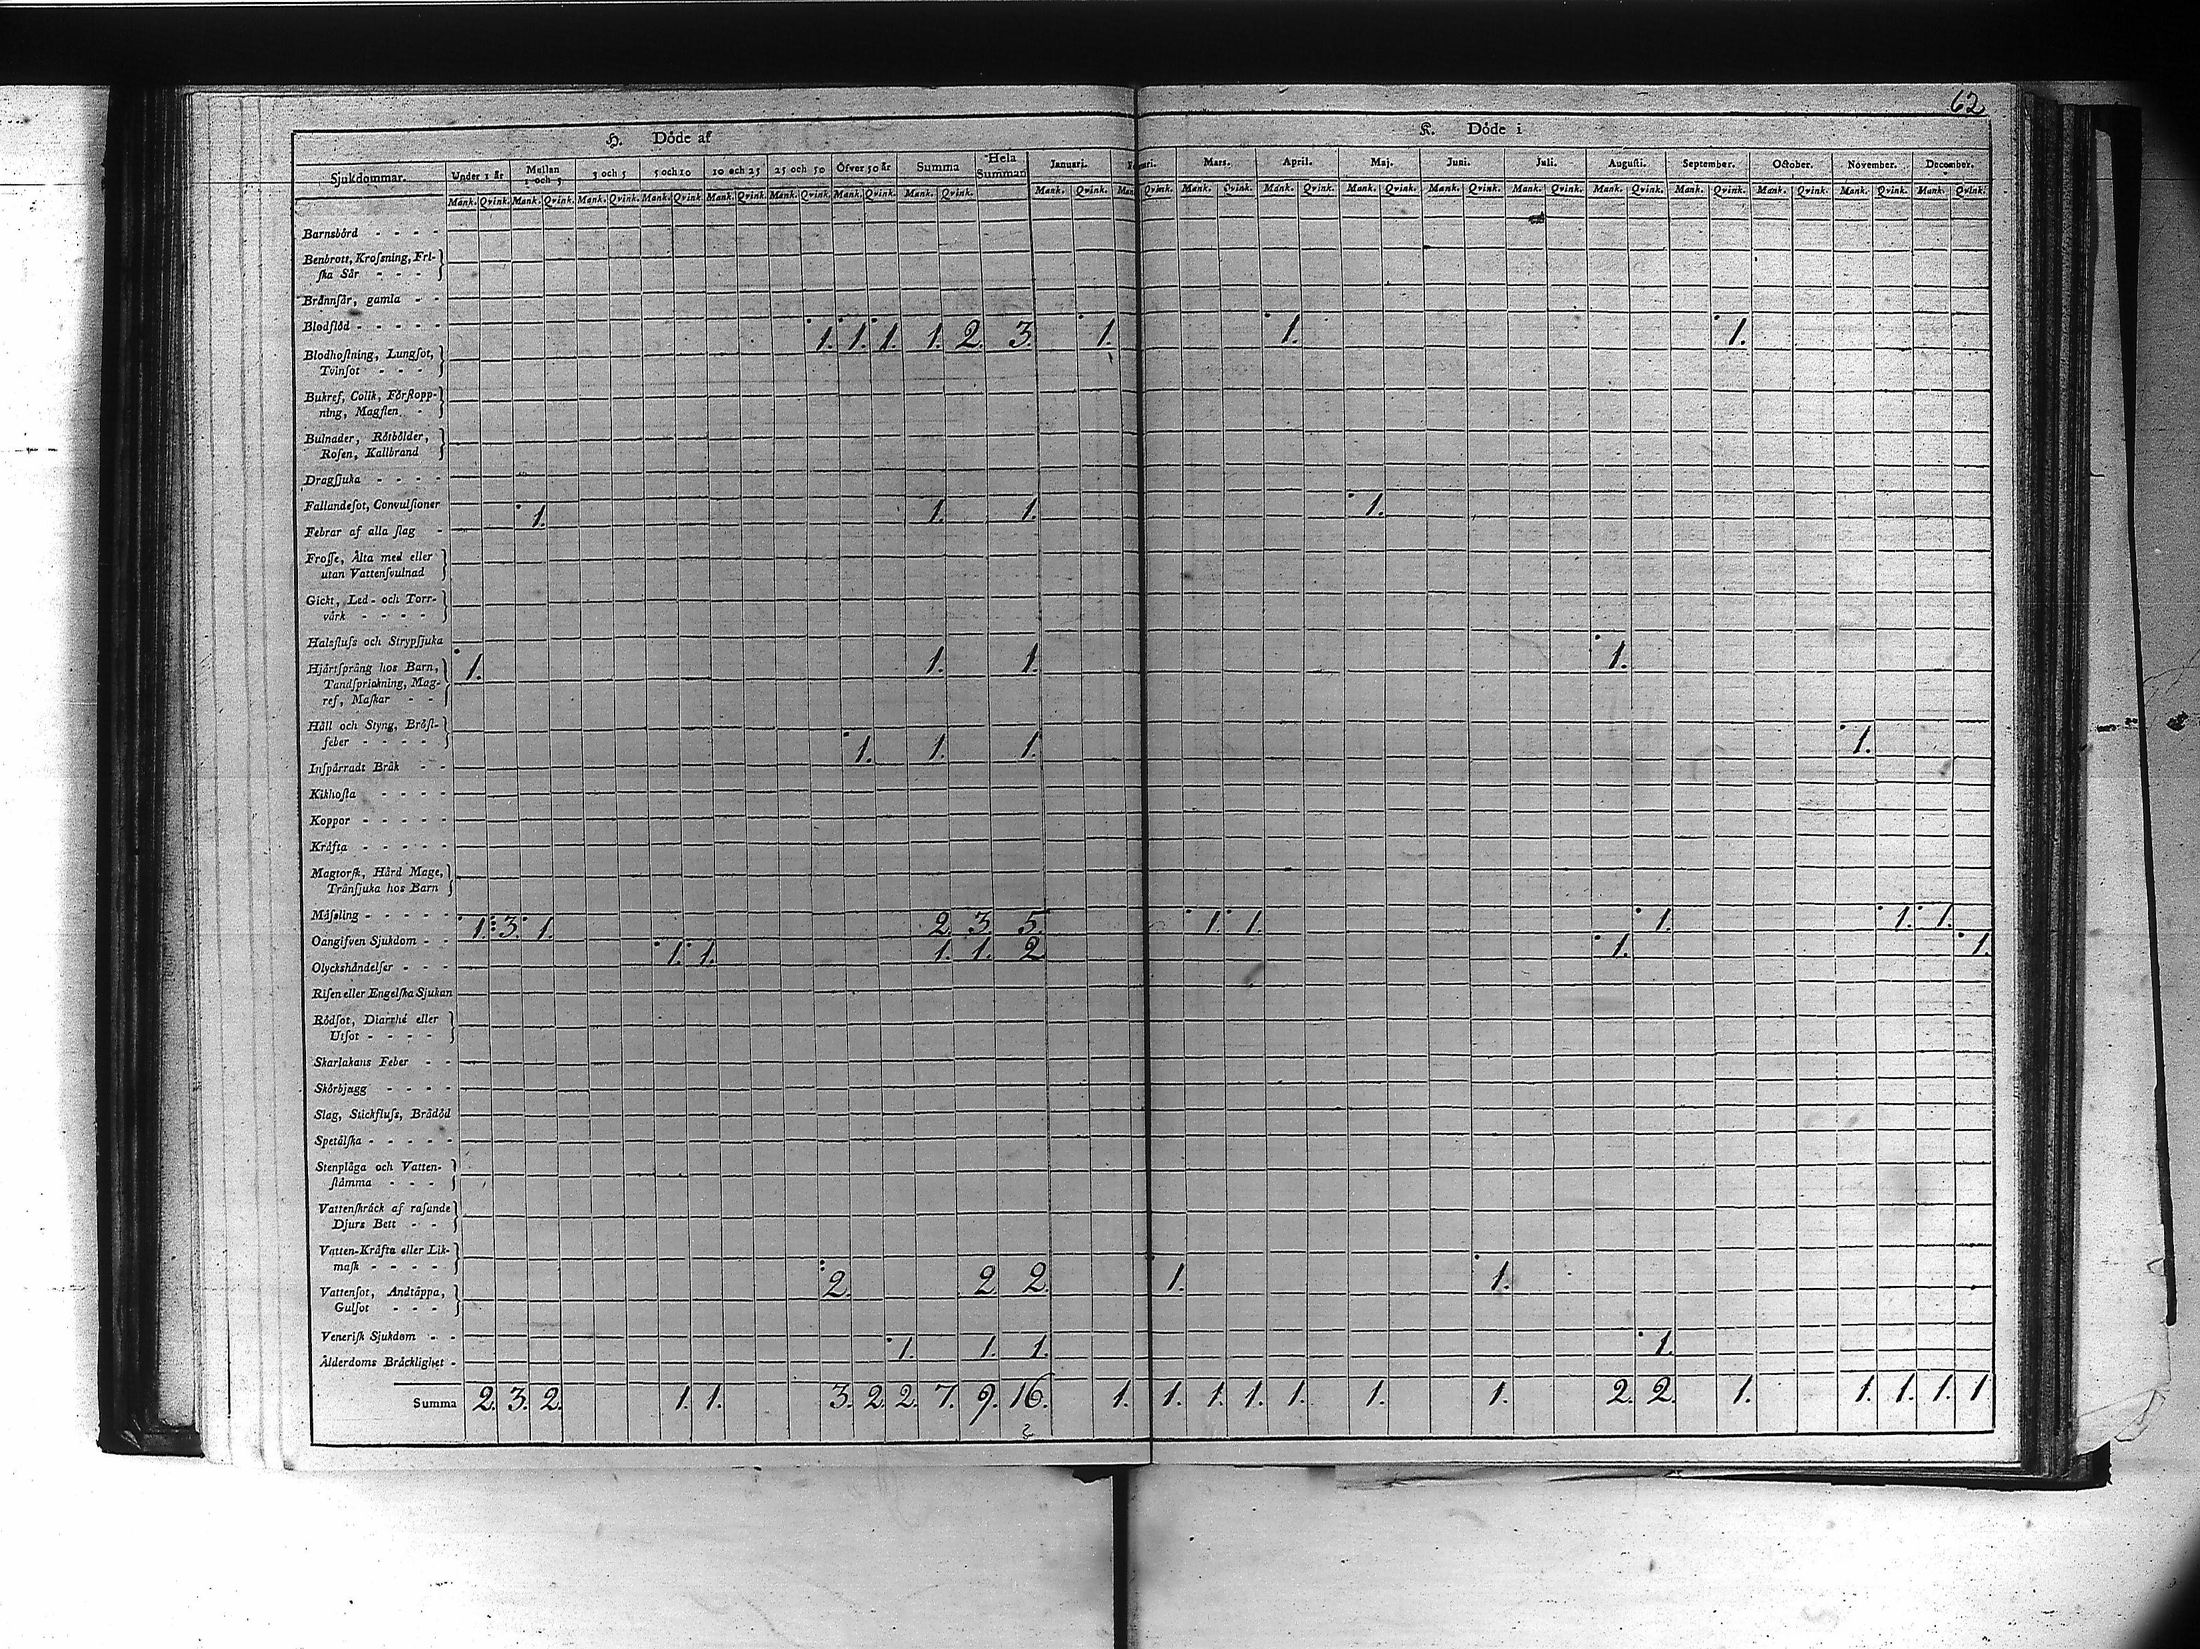 62
H. Döde af K. Döde i
Sjukdommar. Under 1 år Mellan 1 och 3 3 och 5 5 och 10 10 och 25 25 och 50 Öfver 50 år Summa Hela Summan Januari. Mars. April. Maj. Juni. Juli. Augusti. September. October. November. December.
Mank. Qvink. Mank. Qvink. Mank. Qvink. Mank. Qvink. Mank. Qvink. Mank. Qvink. Mank. Qvink. Mank. Qvink. Mank. Qvink. Mank. Qvink. Mank. Qvink. Mank. Qvink. Mank. Qvink. Mank. Qvink. Mank. Qvink. Mank. Qvink. Mank. Qvink. Mank. Qvink. Mank. Qvink. Mank. Qvink.
Barnsbörd - - - -
Benbrott, Krossning, Fri-
ska Sår - - -
Brännsår, gamla - -
Blodflöd - - - - -
1. 1. 1. 1. 2. 3. 1. 1. 1.
Blodhostning, Lungsot,
Tvinsot - - -
Bukref, Colik, Förstopp-
ning, Magsten -
Bulnader, Rötbölder,
Rosen, Kallbrand
Dragsjuka - - - -
Fallandesot, Convulsioner
1. 1. 1. 1.
Febrar af alla slag -
Frosse, Älta med eller
utan Vattensvulnad
Gickt, Led- och Torr-
värk - - - -
Halsfluss och Strypsjuka
1. 1. 1. 1.
Hjärtsprång hos Barn,
Tandsprickning, Mag-
ref, Maskar - -
Håll och Styng, Bröst-
feber - - - -
1. 1. 1. 1.
Inspärradt Bråk - -
Kikhosta - - - -
Koppor - - - - -
Kräfta - - - - -
Magtorsk, Hård Mage,
Tränsjuka hos Barn
Mässling - - - - -
1. 3. 1. 2. 3. 5. 1. 1. 1. 1. 1.
Oangifven Sjukdom - -
1. 1. 1. 1. 2 1. 1.
Olyckshändelser - - -
Risen eller Engelska Sjukan
Rödsot, Diarrhé eller
Utsot - - - -
Skarlakans Feber - -
Skörbjugg - - - -
Slag, Stickfluss, Brådöd
Spetälska - - - - -
Stenplåga och Vatten-
stämma - - -
Vattenskräck af rasande
Djurs Bett - -
Vatten-Kräfta eller Lik-
mask - - - -
2. 2 2. 1. 1.
Vattensot, Andtäppa,
Gulsot - - -
Venerisk Sjukdom - -
1. 1. 1. 1.
Ålderdoms Bräcklighet -
Summa 2. 3. 2. 1. 1. 3. 2. 2. 7. 9. 16. 1. 1. 1. 1. 1. 1. 1. 2. 2. 1. 1. 1. 1. 1